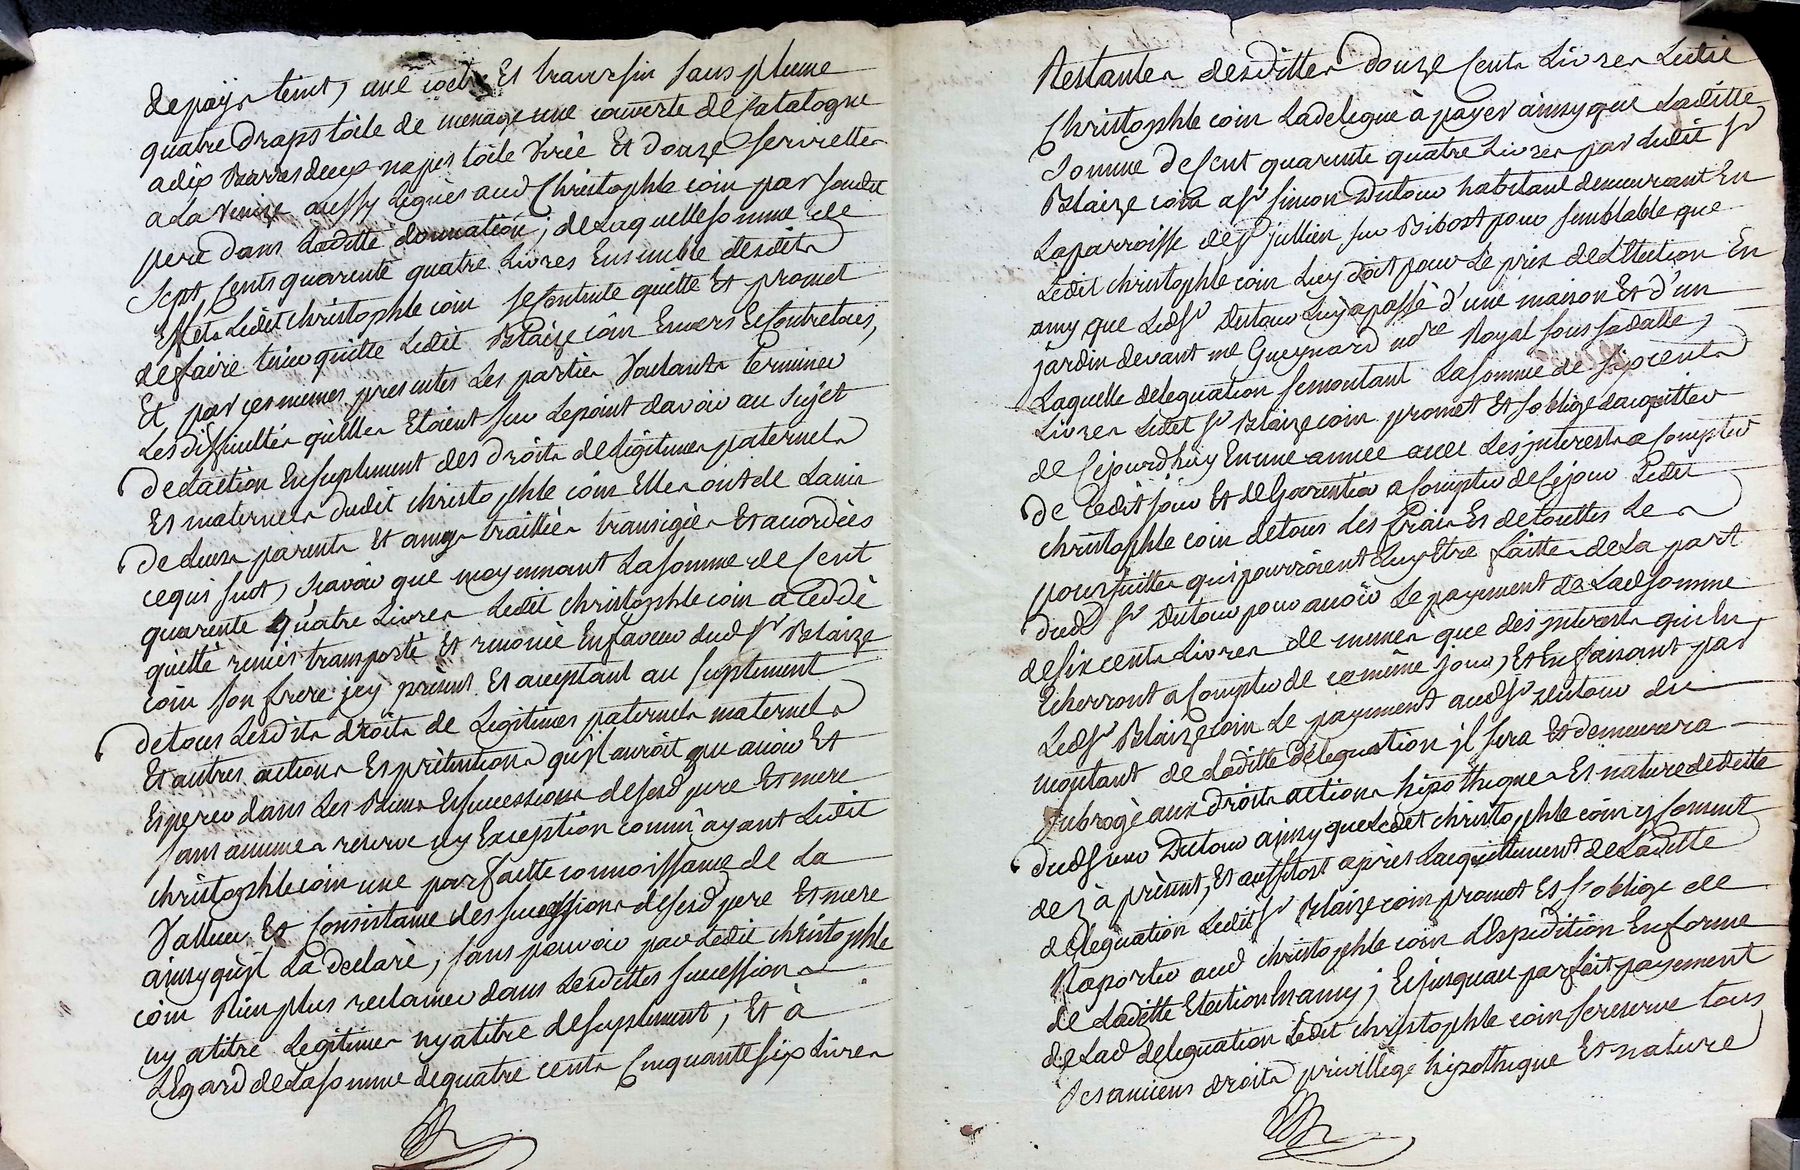 de païs teint, une coetre Et traversin sans plume
quatre draps toile de menage une couverte de Catalogne
a dix barres deux napes toile Virée Et douze serviettes
a La Venize aussy Legués aud Christophle coin par sondit
pere dans Laditte donnation; de Laquelle somme de
sept Cents quarente quatre Livres Ensemble desdits
Effets Ledit christophle coin se contente quitte Et promet
de faire tenir quitte Ledit Blaize coin Envers Et contre tous,
Et par ces memes presentes Les parties Voulants terminer
Les difficultés quelles Etoient sur Le point davoir au sujet
de Laction En suplement des droits de Legitimes paternels
Et maternels dudit christophle coin Elles ont de Lavis
de Leurs parents Et amys traittées transigées Et accordées
ce qui suit, scavoir que moyennant La somme de Cent
quarente quatre Livres Ledit christophle coin a Ceddé
quitté remis transporté Et renoncé En faveur dud Sr Blaize
coin son frere jcy présent Et acceptant au suplement
de tous Lesdits droits de Legitimes paternels maternels
Et autres actions Et prétentions qu'jl auroit pu avoir Et
Esperer dans Les Biens Et successions de sesd pere Et mere
sans aucunes reserve ny Exception comm' ayant Ledit
christophle coin une parfaitte connoissance de La
Valleur Et Consistance des successions de sesd pere Et mere
ainsy qu'jl La declaré, sans pouvoir par Ledit christophle
coin Rien plus reclamer dans Lesdittes successions
ny a titre Legitimes ny a titre de suplement; Et à
LEgard de La somme de quatre cents Cinquante six Livres
Restantes desdittes Douze Cents Livres Ledit
Christophle coin La delegue à payer ainsy que Laditte
somme de Cent quarente quatre Livres par Ledit Sr
Blaize coin a Sr simon Dutour habitant demeurant En
La parroisse de St jullien sur Bibost pour semblable que
Ledit christophle coin Luy doit pour Le prix de LElection En
amy que Led Sr Dutour Luy a passé d'une maison Et d'un
jardin devant me Gueynard nore Royal sous sa datte,
Laquelle deleguation se montant La somme de six cents
Livres Ledit Sr Blaize coin promet Et soblige dacquitter
de Cejourdhuy En une année avec Les jnterests a Compter
de Cedit jour Et de Garentir a Compter de Cejour Ledit
christophle coin de tous Les frais Et de touttes Les
poursuittes qui pourroient Luy Etre faittes de La part
dud Sr Dutour pour avoir Le payement de Lad somme
de six cents Livres de memes que des jnterests qui En
Echerront a Compter de ce même jour, Et En faisant par
Led Sr Blaize coin Le payement aud Sr dutour du
montant de Laditte Deleguation jl sera Et demeurera
subrogé aux droits actions hipothèques Et nature de dette
dud sieur Dutour ainsy que Ledit christophle coin y Consent
de'z à présent, Et aussitost après Lacquittement de Laditte
deleguation Ledit Sr Blaize coin promet Et s'oblige de
Raporter aud christophle coin dExpedition En forme
de Laditte Election En amy; Et jusquau parfait payement
de Lad deleguation Ledit christophle coin se reserve tous
ses anciens droits privillège hipothèque Et nature